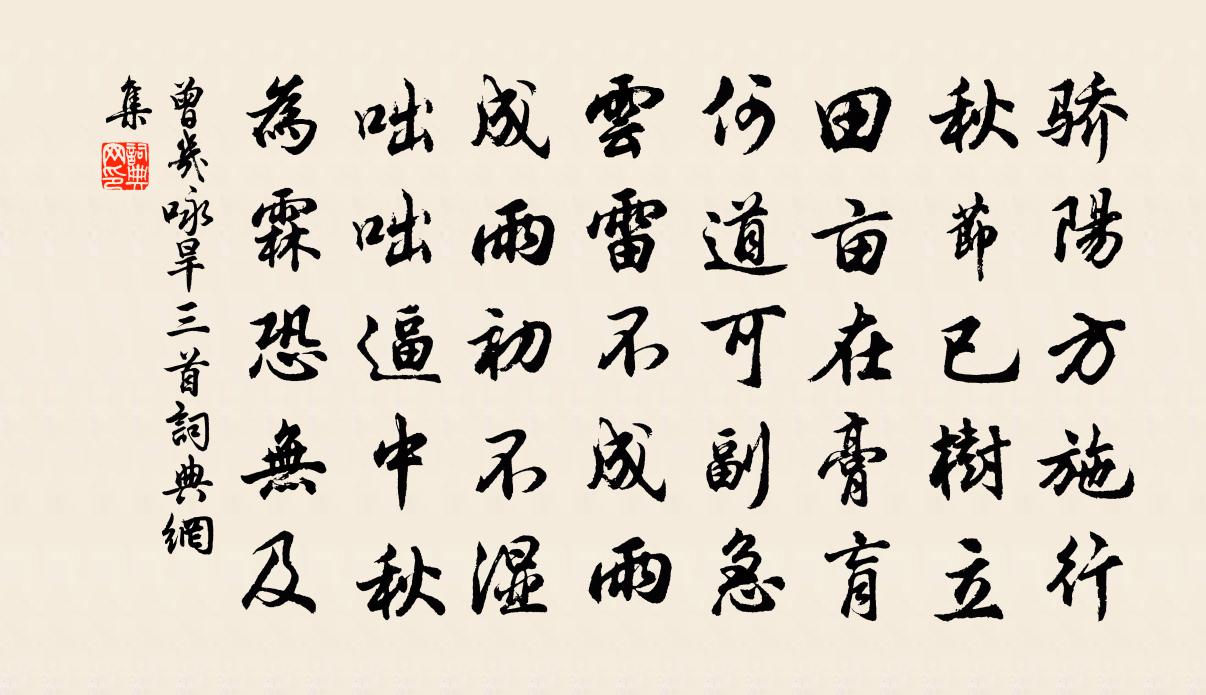 骄陽方施行
秋節已樹立
田亩在膏肓
何道可副急
雲雷不成雨
成雨初不湿
咄咄逼中秋
為霖恐無及
曾幾咏旱三首詞典網
集
詞典網印